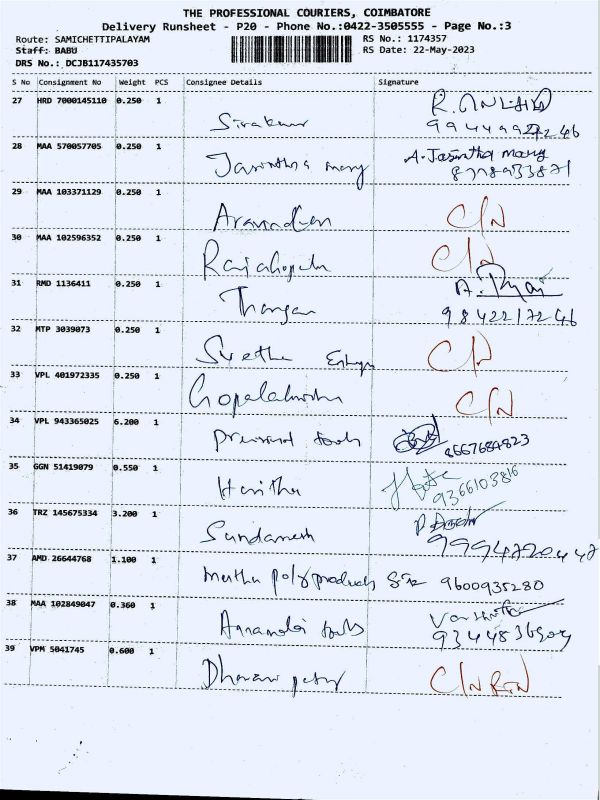 THE PROFESSIONAL COURIERS, COIMBATORE
Delivery Runsheet - P20 - Phone No.:0422-3505555 - Page No.:3
Route: SAMICHETTIPALAYAM RS No.: 1174357
Staff: BABU RS Date: 22-May-2023
DRS No.: DCJB117435703
S No Consignment No Weight PCS Consignee Details Signature
27 HRD 7000145110 0.250 1
Sivakumar
28 MAA 570057705 0.250 1 A. Jasintha mary
Jasintha mary 8778933871
29 MAA 103371129 0.250 1
Aravindan C/N
30 MAA 102596352 0.250 1
Rajagopal C/N
31 RMD 1136411 0.250 1
Thangam 9842217246
32 MTP 3039073 0.250 1
C/N
33 VPL 401972335 0.250 1
Gopalakrishn C/N
34 VPL 943365025 6.200 1
tools 8667684823
35 GGN 51419079 0.550 1
Haritha 9366103816
36 TRZ 145675334 3.200 1
Sundaresh
37 AMD 26644768 1.100 1
Muthu poly products 9600935280
38 MAA 102849047 0.360 1
Annamalai tools
39 VPM 5041745 0.600 1
C/N RTN